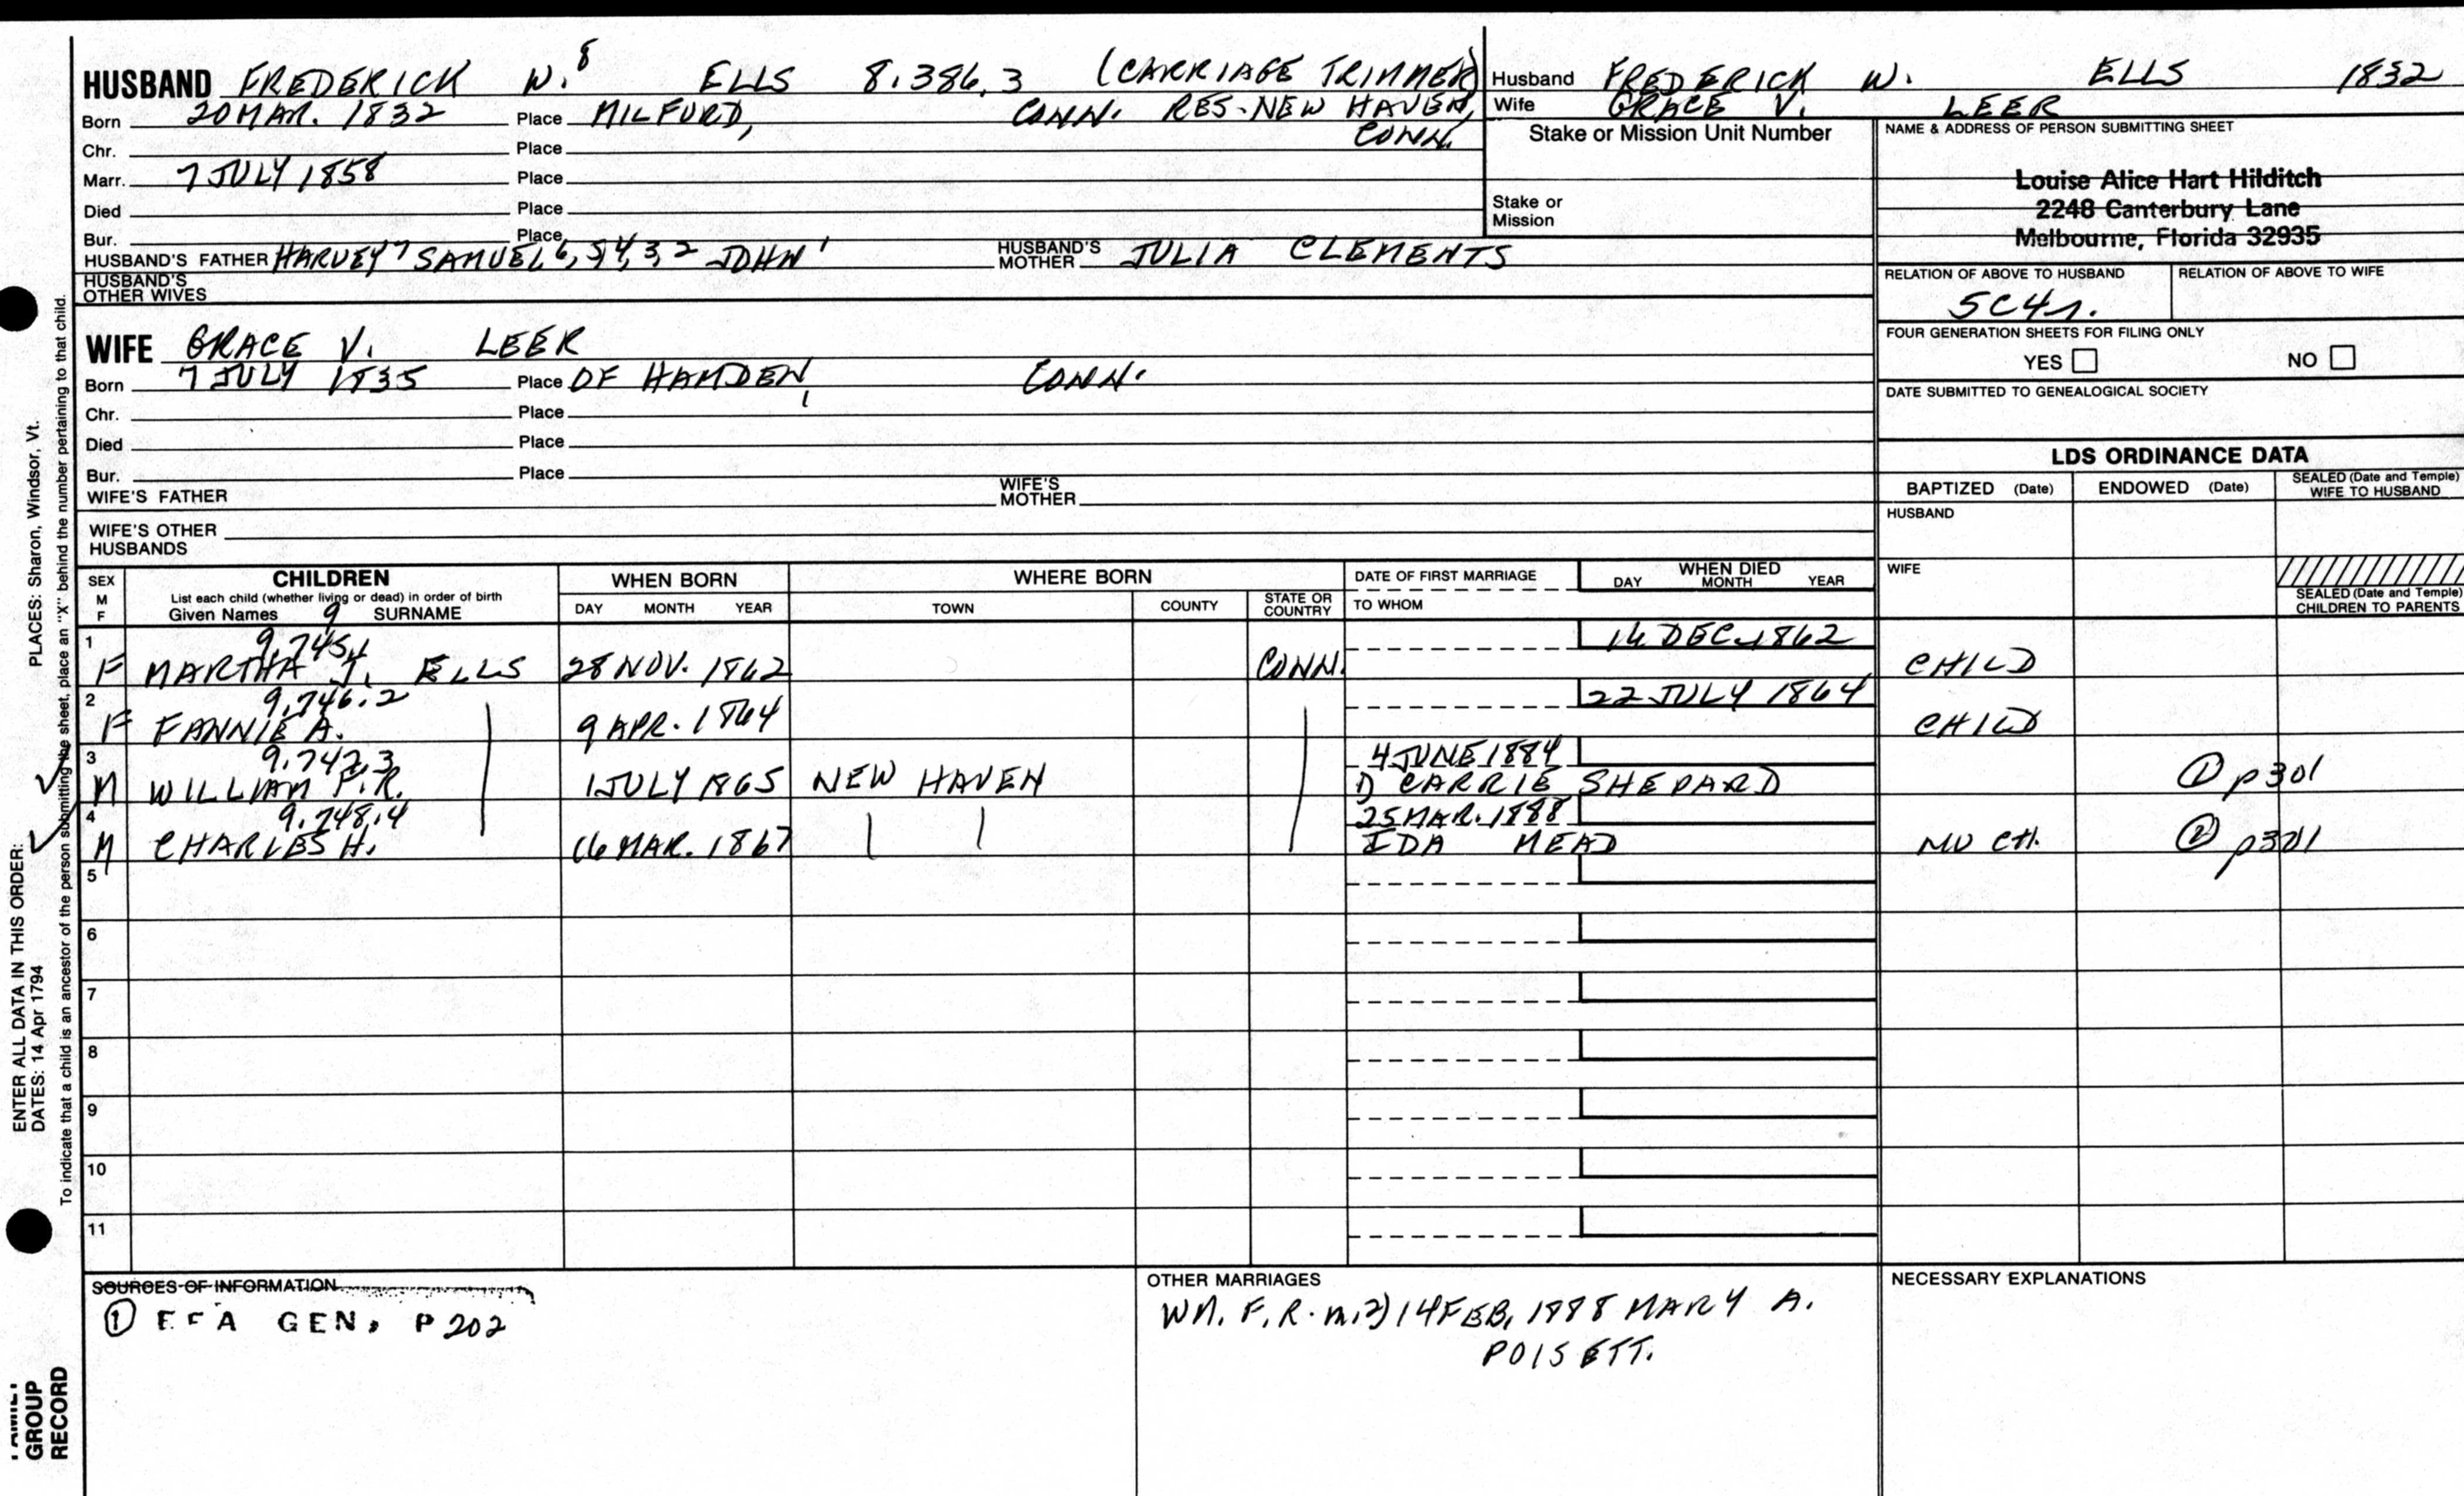 HUSBAND FREDERICK W.8 ELLS 8.386.3 (CARRIAGE TRIMMER)
Born 20 MAR. 1832 Place MILFORD, CONN. RES-NEW HAVEN, CONN.
Chr. Place
Marr. 7 JULY 1858 Place
Died Place
Bur. Place
HUSBAND'S FATHER HARVEY7 SAMUEL6,5,4,3,2 JOHN1 HUSBAND'S MOTHER JULIA CLEMENTS
HUSBAND'S OTHER WIVES
Husband FREDERICK W. ELLS 1832
Wife GRACE V. LEER
Stake or Mission Unit Number
Stake or Mission
NAME & ADDRESS OF PERSON SUBMITTING SHEET
Louise Alice Hart Hilditch
2248 Canterbury Lane
Melbourne, Florida 32935
RELATION OF ABOVE TO HUSBAND RELATION OF ABOVE TO WIFE
5C4r.
FOUR GENERATION SHEETS FOR FILING ONLY
YES NO
DATE SUBMITTED TO GENEALOGICAL SOCIETY
WIFE GRACE V. LEER
Born 7 JULY 1835 Place OF HAMDEN, CONN.
Chr. Place
Died Place
Bur. Place
WIFE'S FATHER WIFE'S MOTHER
WIFE'S OTHER HUSBANDS
LDS ORDINANCE DATA
BAPTIZED (Date) ENDOWED (Date) SEALED (Date and Temple) WIFE TO HUSBAND
HUSBAND
WIFE
SEALED (Date and Temple) CHILDREN TO PARENTS
SEX M F
CHILDREN
List each child (whether living or dead) in order of birth
Given Names 9 SURNAME
WHEN BORN
DAY MONTH YEAR
WHERE BORN
TOWN COUNTY STATE OR COUNTRY
DATE OF FIRST MARRIAGE
TO WHOM
WHEN DIED
DAY MONTH YEAR
1 9.745.1 14 DEC. 1862
F MARTHA J. ELLS 28 NOV. 1862 CONN. CHILD
2 9.746.2 22 JULY 1864
F FANNIE A. 9 APR. 1864 CHILD
3 9.747.3 4 JUNE 1884
M WILLIAM F.R. 1 JULY 1865 NEW HAVEN 1) CARRIE SHEPARD ① p301
4 9.748.4 25 MAR. 1888
M CHARLES H. 16 MAR. 1867 IDA MEAD NO CH. ② p301
5
6
7
8
9
10
11
SOURCES OF INFORMATION
① EFA GEN, P202
OTHER MARRIAGES
WM. F. R. m. 2) 14 FEB, 1888 MARY A.
POISETT.
NECESSARY EXPLANATIONS
ENTER ALL DATA IN THIS ORDER:
DATES: 14 Apr 1794 PLACES: Sharon, Windsor, Vt.
To indicate that a child is an ancestor of the person submitting the sheet, place an "X" behind the number pertaining to that child.
FAMILY
GROUP
RECORD